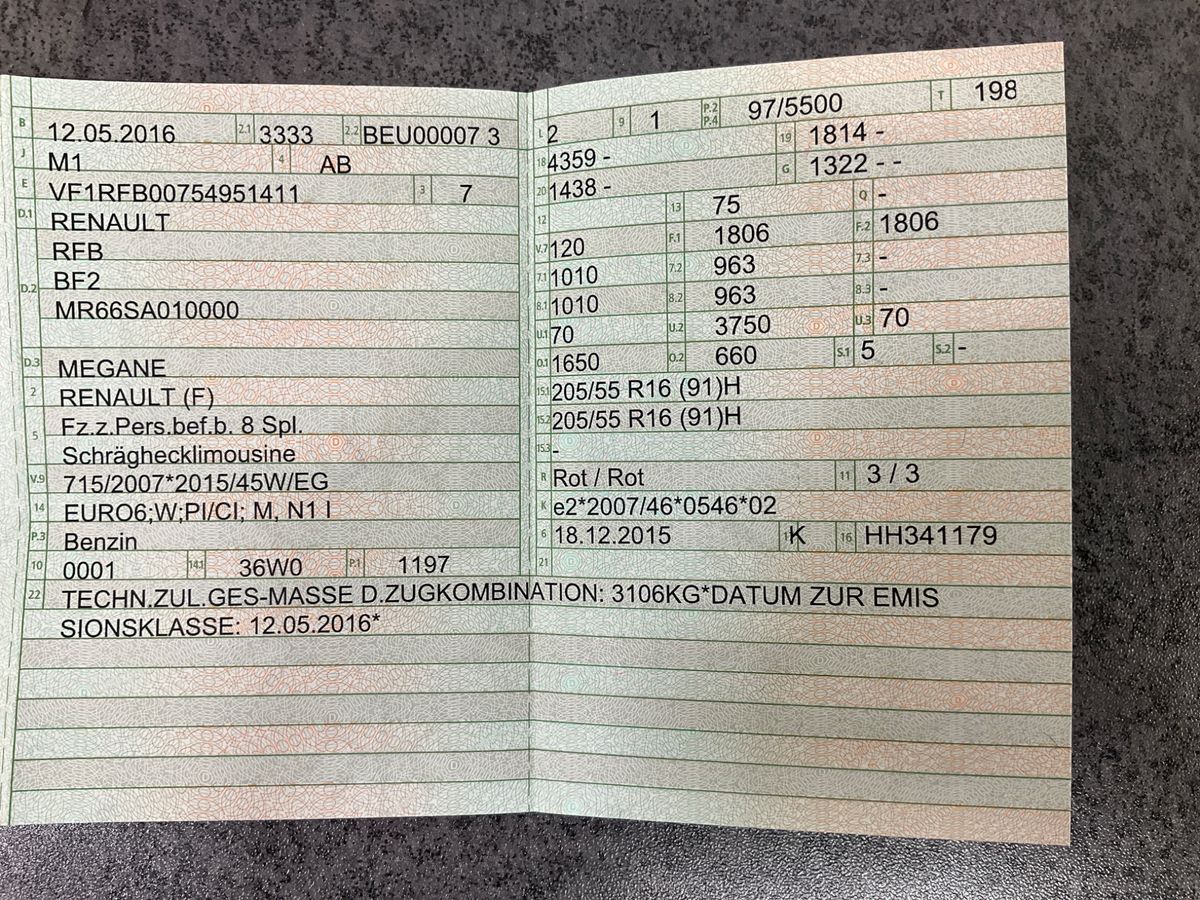 B 12.05.2016 2.1 3333 2.2 BEU00007 3
J M1 4 AB
E VF1RFB00754951411 3 7
D.1 RENAULT
RFB
D.2 BF2
MR66SA010000
D.3 MEGANE
2 RENAULT (F)
5 Fz.z.Pers.bef.b. 8 Spl.
Schräghecklimousine
V.9 715/2007*2015/45W/EG
14 EURO6;W;PI/CI; M, N1 I
P.3 Benzin
10 0001 14.1 36W0 P.1 1197
L 2 9 1 P.2 P.4 97/5500 T 198
18 4359 - 19 1814 -
20 1438 - G 1322 - -
12 13 75 Q -
V.7 120 F.1 1806 F.2 1806
7.1 1010 7.2 963 7.3 -
8.1 1010 8.2 963 8.3 -
U.1 70 U.2 3750 U.3 70
O.1 1650 O.2 660 S.1 5 S.2 -
15.1 205/55 R16 (91)H
15.2 205/55 R16 (91)H
15.3 -
R Rot / Rot 11 3 / 3
K e2*2007/46*0546*02
6 18.12.2015 K 16 HH341179
21
22 TECHN.ZUL.GES-MASSE D.ZUGKOMBINATION: 3106KG*DATUM ZUR EMIS
SIONSKLASSE: 12.05.2016*